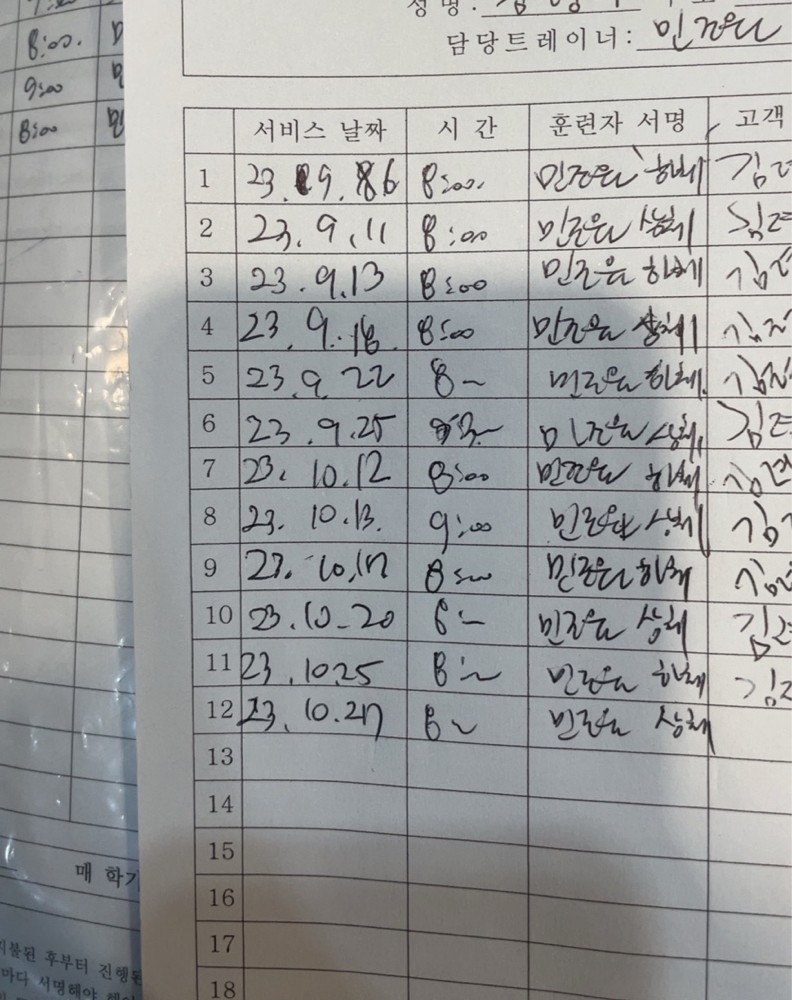 8:00.
9:00
8:00
성 명 :
담당트레이너 : 민
서비스 날짜 시 간 훈련자 서명 고객
1 23. 9. 6 8:00. 민 하체 김
2 23. 9. 11 8:00 민 상체 김
3 23. 9. 13 8:00 민 하체 김
4 23. 9. 18. 8:00 민 상체 김
5 23. 9. 22 8~ 민 하체. 김
6 23. 9. 25 민 상체, 김
7 23. 10. 12 8:00 민 하체 김
8 23. 10. 13. 9:00 민 상체 김
9 23. 10. 17 8:00 민 하체 김
10 23. 10. 20 8:~ 민 상체 김
11 23. 10 25 8:~ 민 하체 김
12 23. 10. 27 8~ 민 상체
13
14
15
16
17
18
매 학기
지불된 후부터 진행된
마다 서명해야